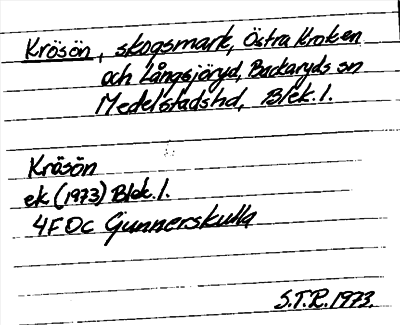 Krösön, skogsmark, Östra Kroken
och Långsjöryd, Backaryds sn
Medelstadshd, Blek. l.
Krösön
ek (1973) Blek. l.
4F 0c Gunnerskulla
S.T.R. 1973.